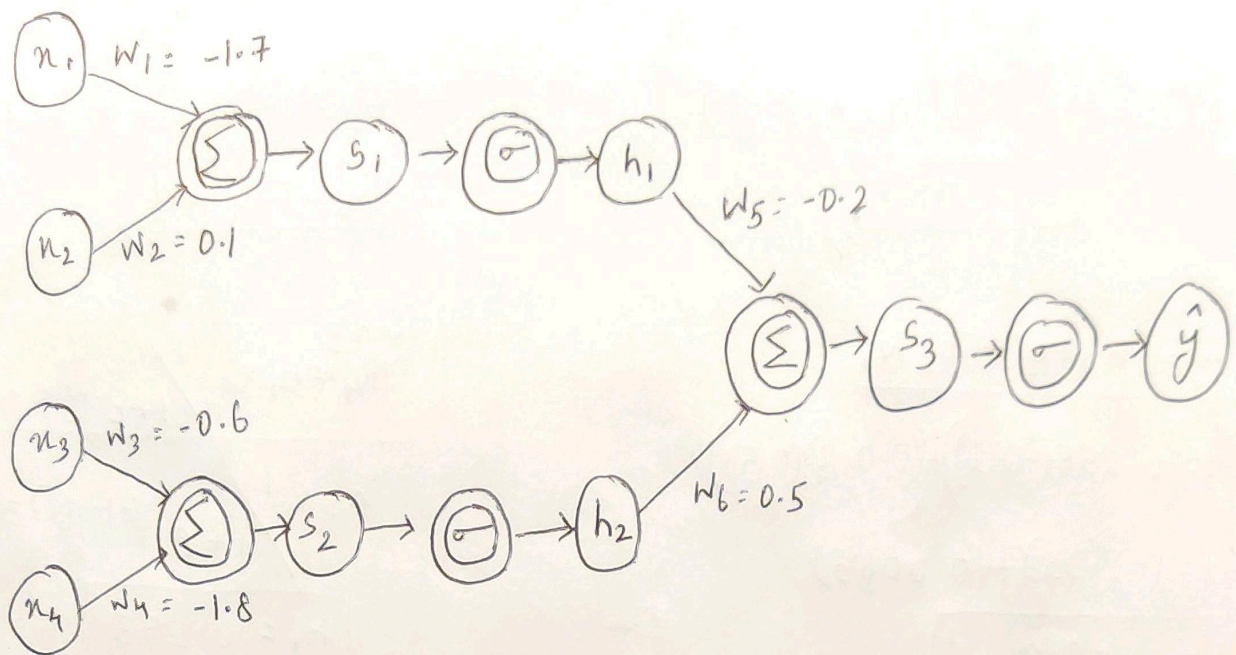 x₁ W₁ = -1.7
Σ S₁ σ h₁
x₂ W₂ = 0.1
W₅ = -0.2
Σ S₃ σ ŷ
x₃ W₃ = -0.6
Σ S₂ σ h₂
W₆ = 0.5
x₄ W₄ = -1.8